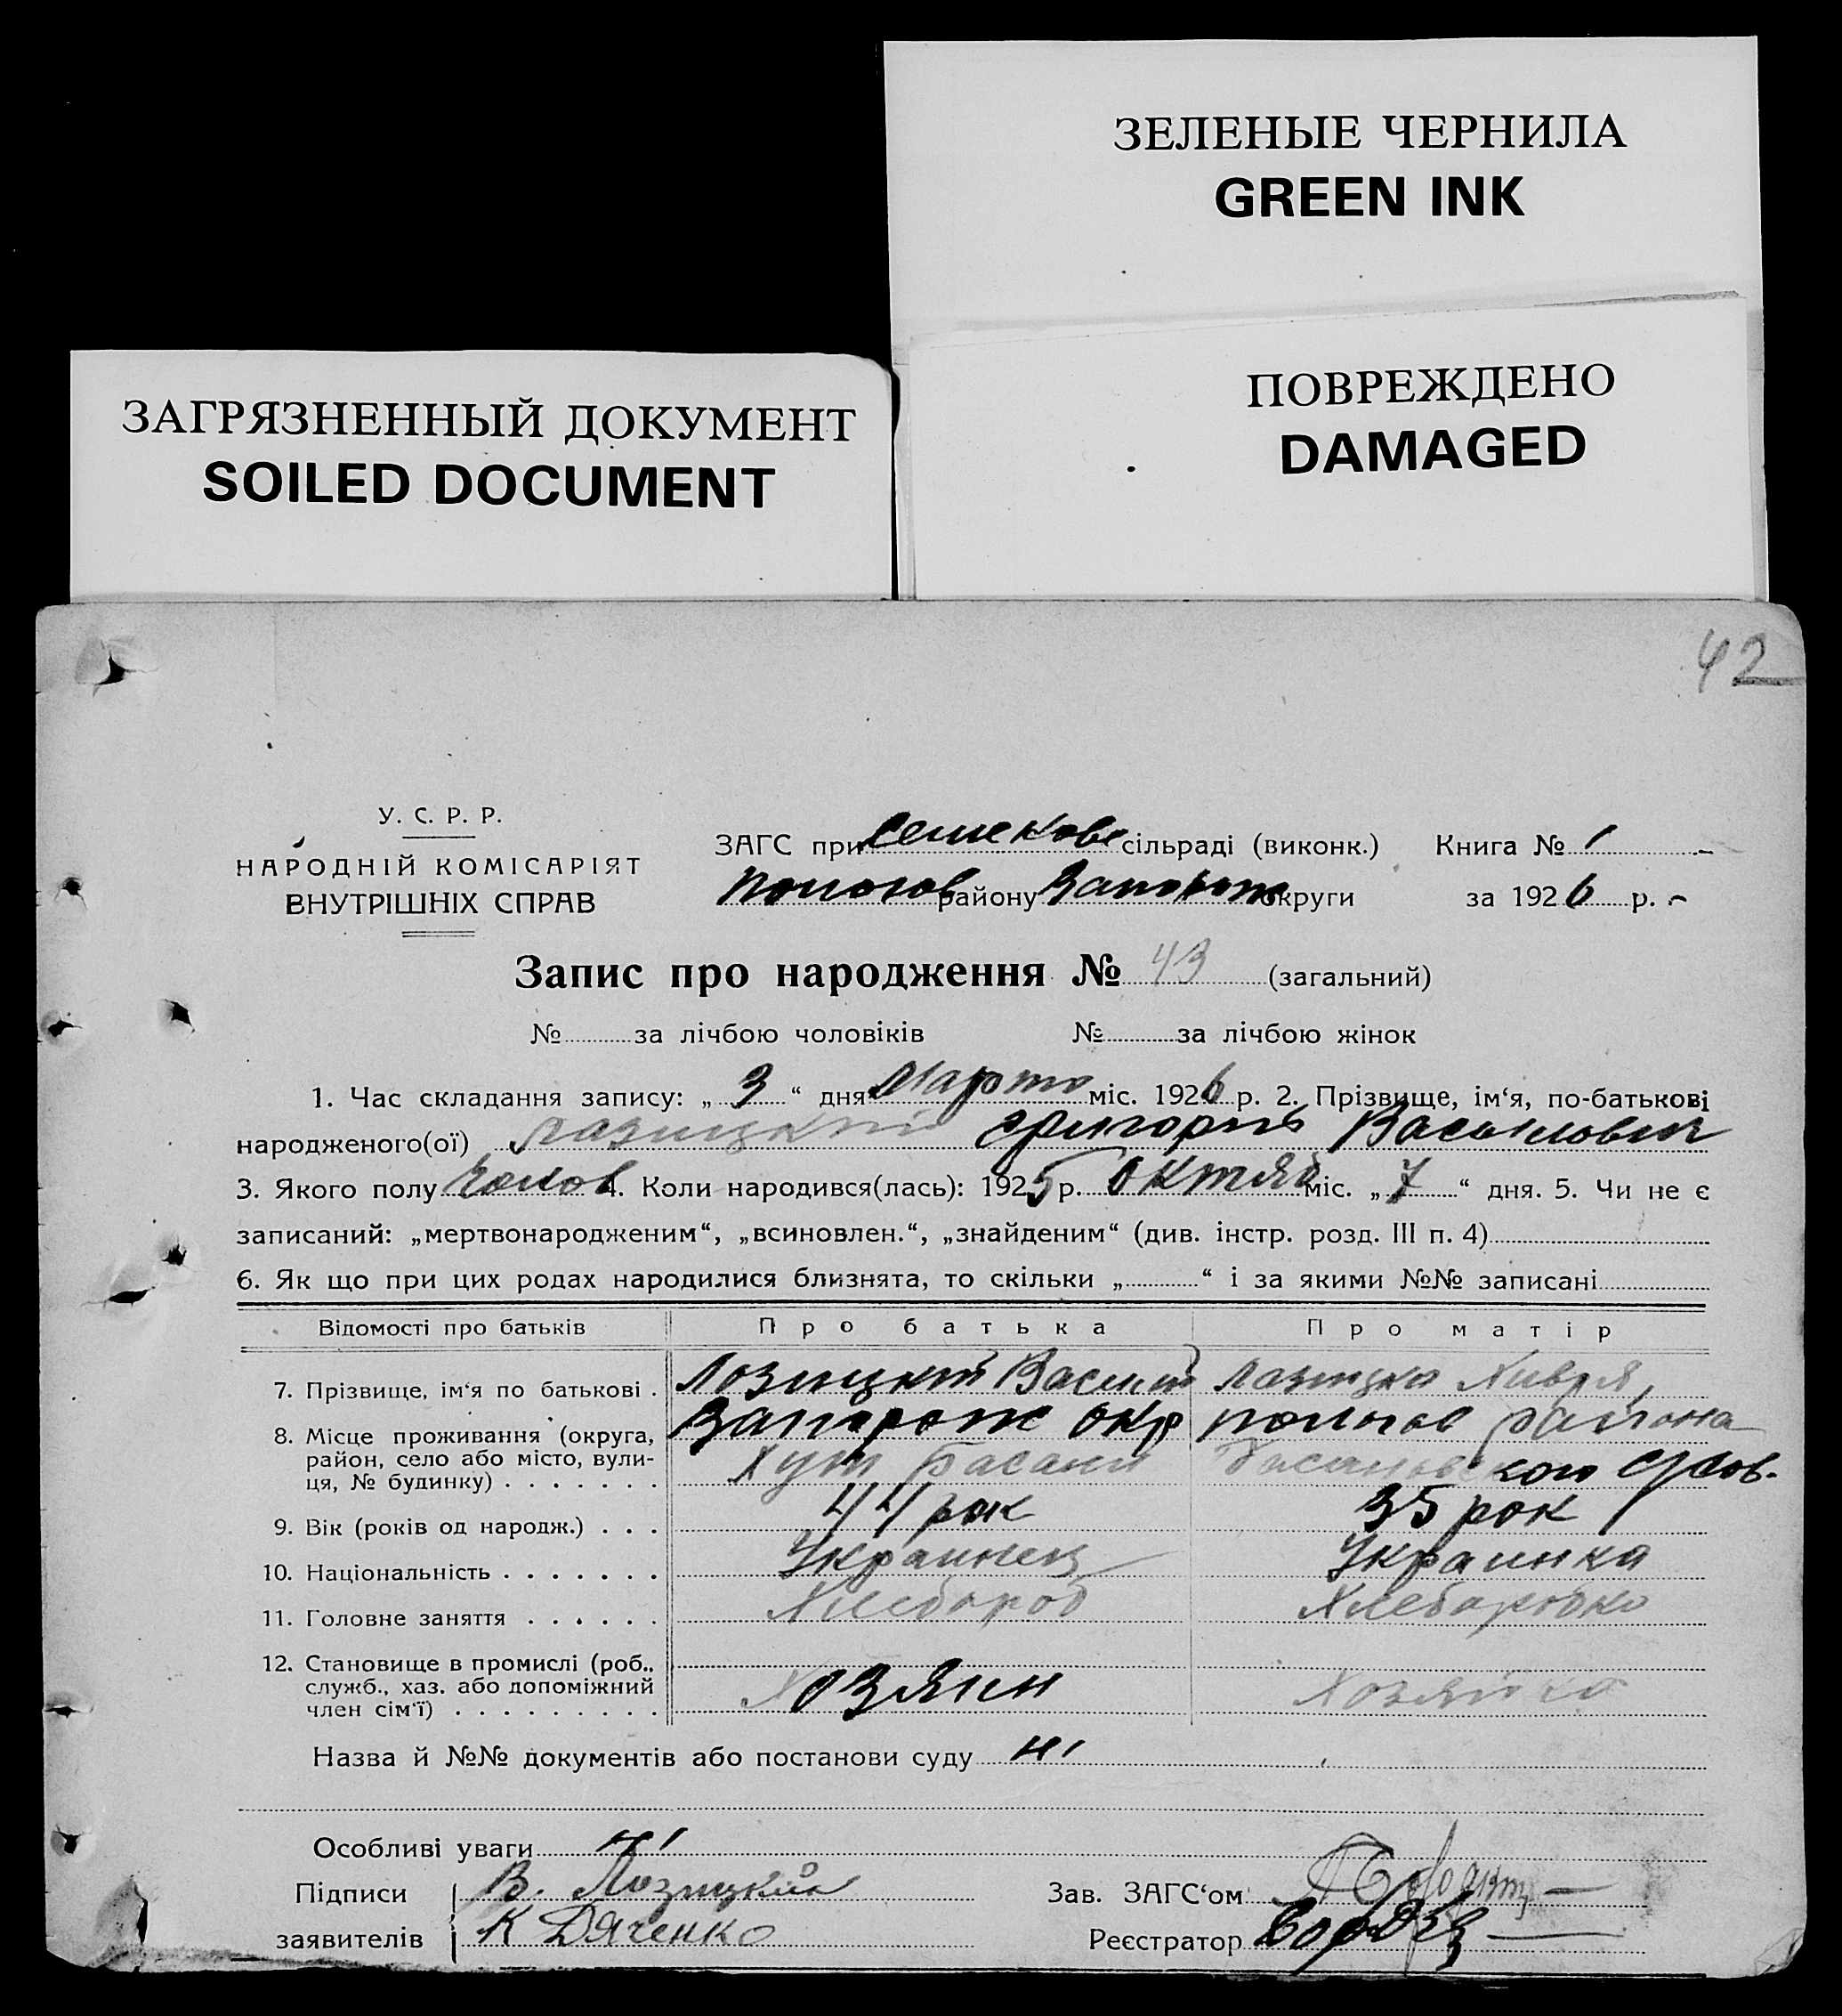 ЗЕЛЕНЫЕ ЧЕРНИЛА
GREEN INK
ПОВРЕЖДЕНО
DAMAGED
ЗАГРЯЗНЕННЫЙ ДОКУМЕНТ
SOILED DOCUMENT
42
У. С. Р. Р.
НАРОДНІЙ КОМІСАРІЯТ
ВНУТРІШНІХ СПРАВ
ЗАГС при сільраді (виконк.) Книга № 1
Пологов району Запорож округи за 1926 р.
Запис про народження № 43 (загальний)
№ за лічбою чоловіків № за лічбою жінок
1. Час складання запису: „ 3 “ дня Марта міс. 1926 р. 2. Прізвище, ім‘я, по-батькові
народженого(ої) Лазицкий Григорий Василович
3. Якого полу Чолов 4. Коли народився(лась): 1925 р. Октяб міс. „ 7 “ дня. 5. Чи не є
записаний: „мертвонародженим“, „всиновлен.“, „знайденим“ (див. інстр. розд. III п. 4)
6. Як що при цих родах народилися близнята, то скільки „ “ і за якими №№ записані
Відомості про батьків Про батька Про матір
7. Прізвище, ім‘я по батькові . Лозицкий Васили Лазицка Хивря,
8. Місце проживання (округа, Запорож окр пологов района
район, село або місто, вули- Хут Басани Басановского
ця, № будинку)
9. Вік (років од народж.) . . . 44 рок 35 рок
10. Національність Украинец Украинка
11. Головне заняття Хлебороб Хлеборобка
12. Становище в промислі (роб.,
служб., хаз. або допоміжний Хозяин Хозяйка
член сім‘ї)
Назва й №№ документів або постанови суду ні
Особливі уваги ні
Підписи В. Лозицкий Зав. ЗАГС‘ом
заявителів К Дяченко Реєстратор